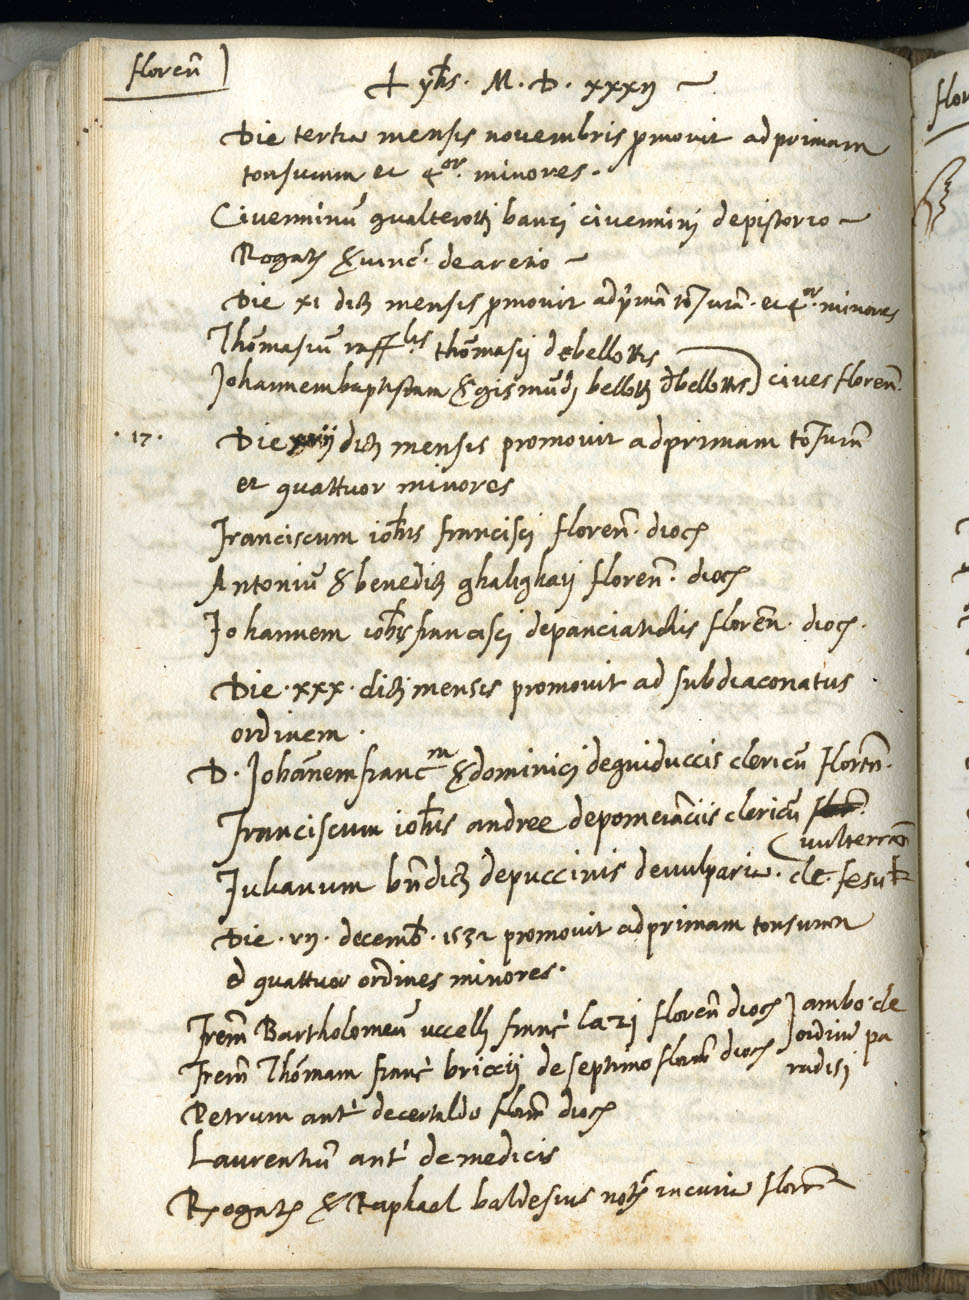 floren̄
yhs. M. D. xxxij
Die tertia mensis novembris promovit ad primam
tonsuram et 4or. minores.
Civerninū gualterotti banci civernini de pistorio
Rogatz & vinc. de aretio
Die xi dicti mensis promovit ad primā tōsurā. et 4or. minores
Thōmasiū raff.lis thōmasij de bellottis
Johannembaptistam & gismūdi bellotti de bellottis) cives floren̄.
. 17. Die xvij dicti mensis promovit ad primam tōsurā
et quattuor minores
Franciscum iohis francisci floren̄. dioc
Antoniū & benedicti ghalighaij floren̄. dioc
Johannem iohis francisci de panciatichis floren̄. dioc.
Die . xxx . dicti mensis promovit ad subdiaconatus
ordinem .
D. Johānem francm & dominici de guiduccis clericū floren̄.
Franciscum iohis andree de pomerāciis clericū
vulterran̄
Julianum bn̄dicti de puccinis de vulparia. cle. fesul
Die . vij . decemb . 1532 promovit ad primam tonsuram
ed quattuor ordines minores.
frem̄ Bartholomeū uccelli franc lazi floren̄ dioc } ambo de
frem̄ Thōmam franc briccij de septimo floren̄ dioc ordine pa
radisi
Petrum ant de certaldo floren̄ dioc
Laurentiū ant de medicis
Rogatz & Raphael baldesius not in curia floren̄